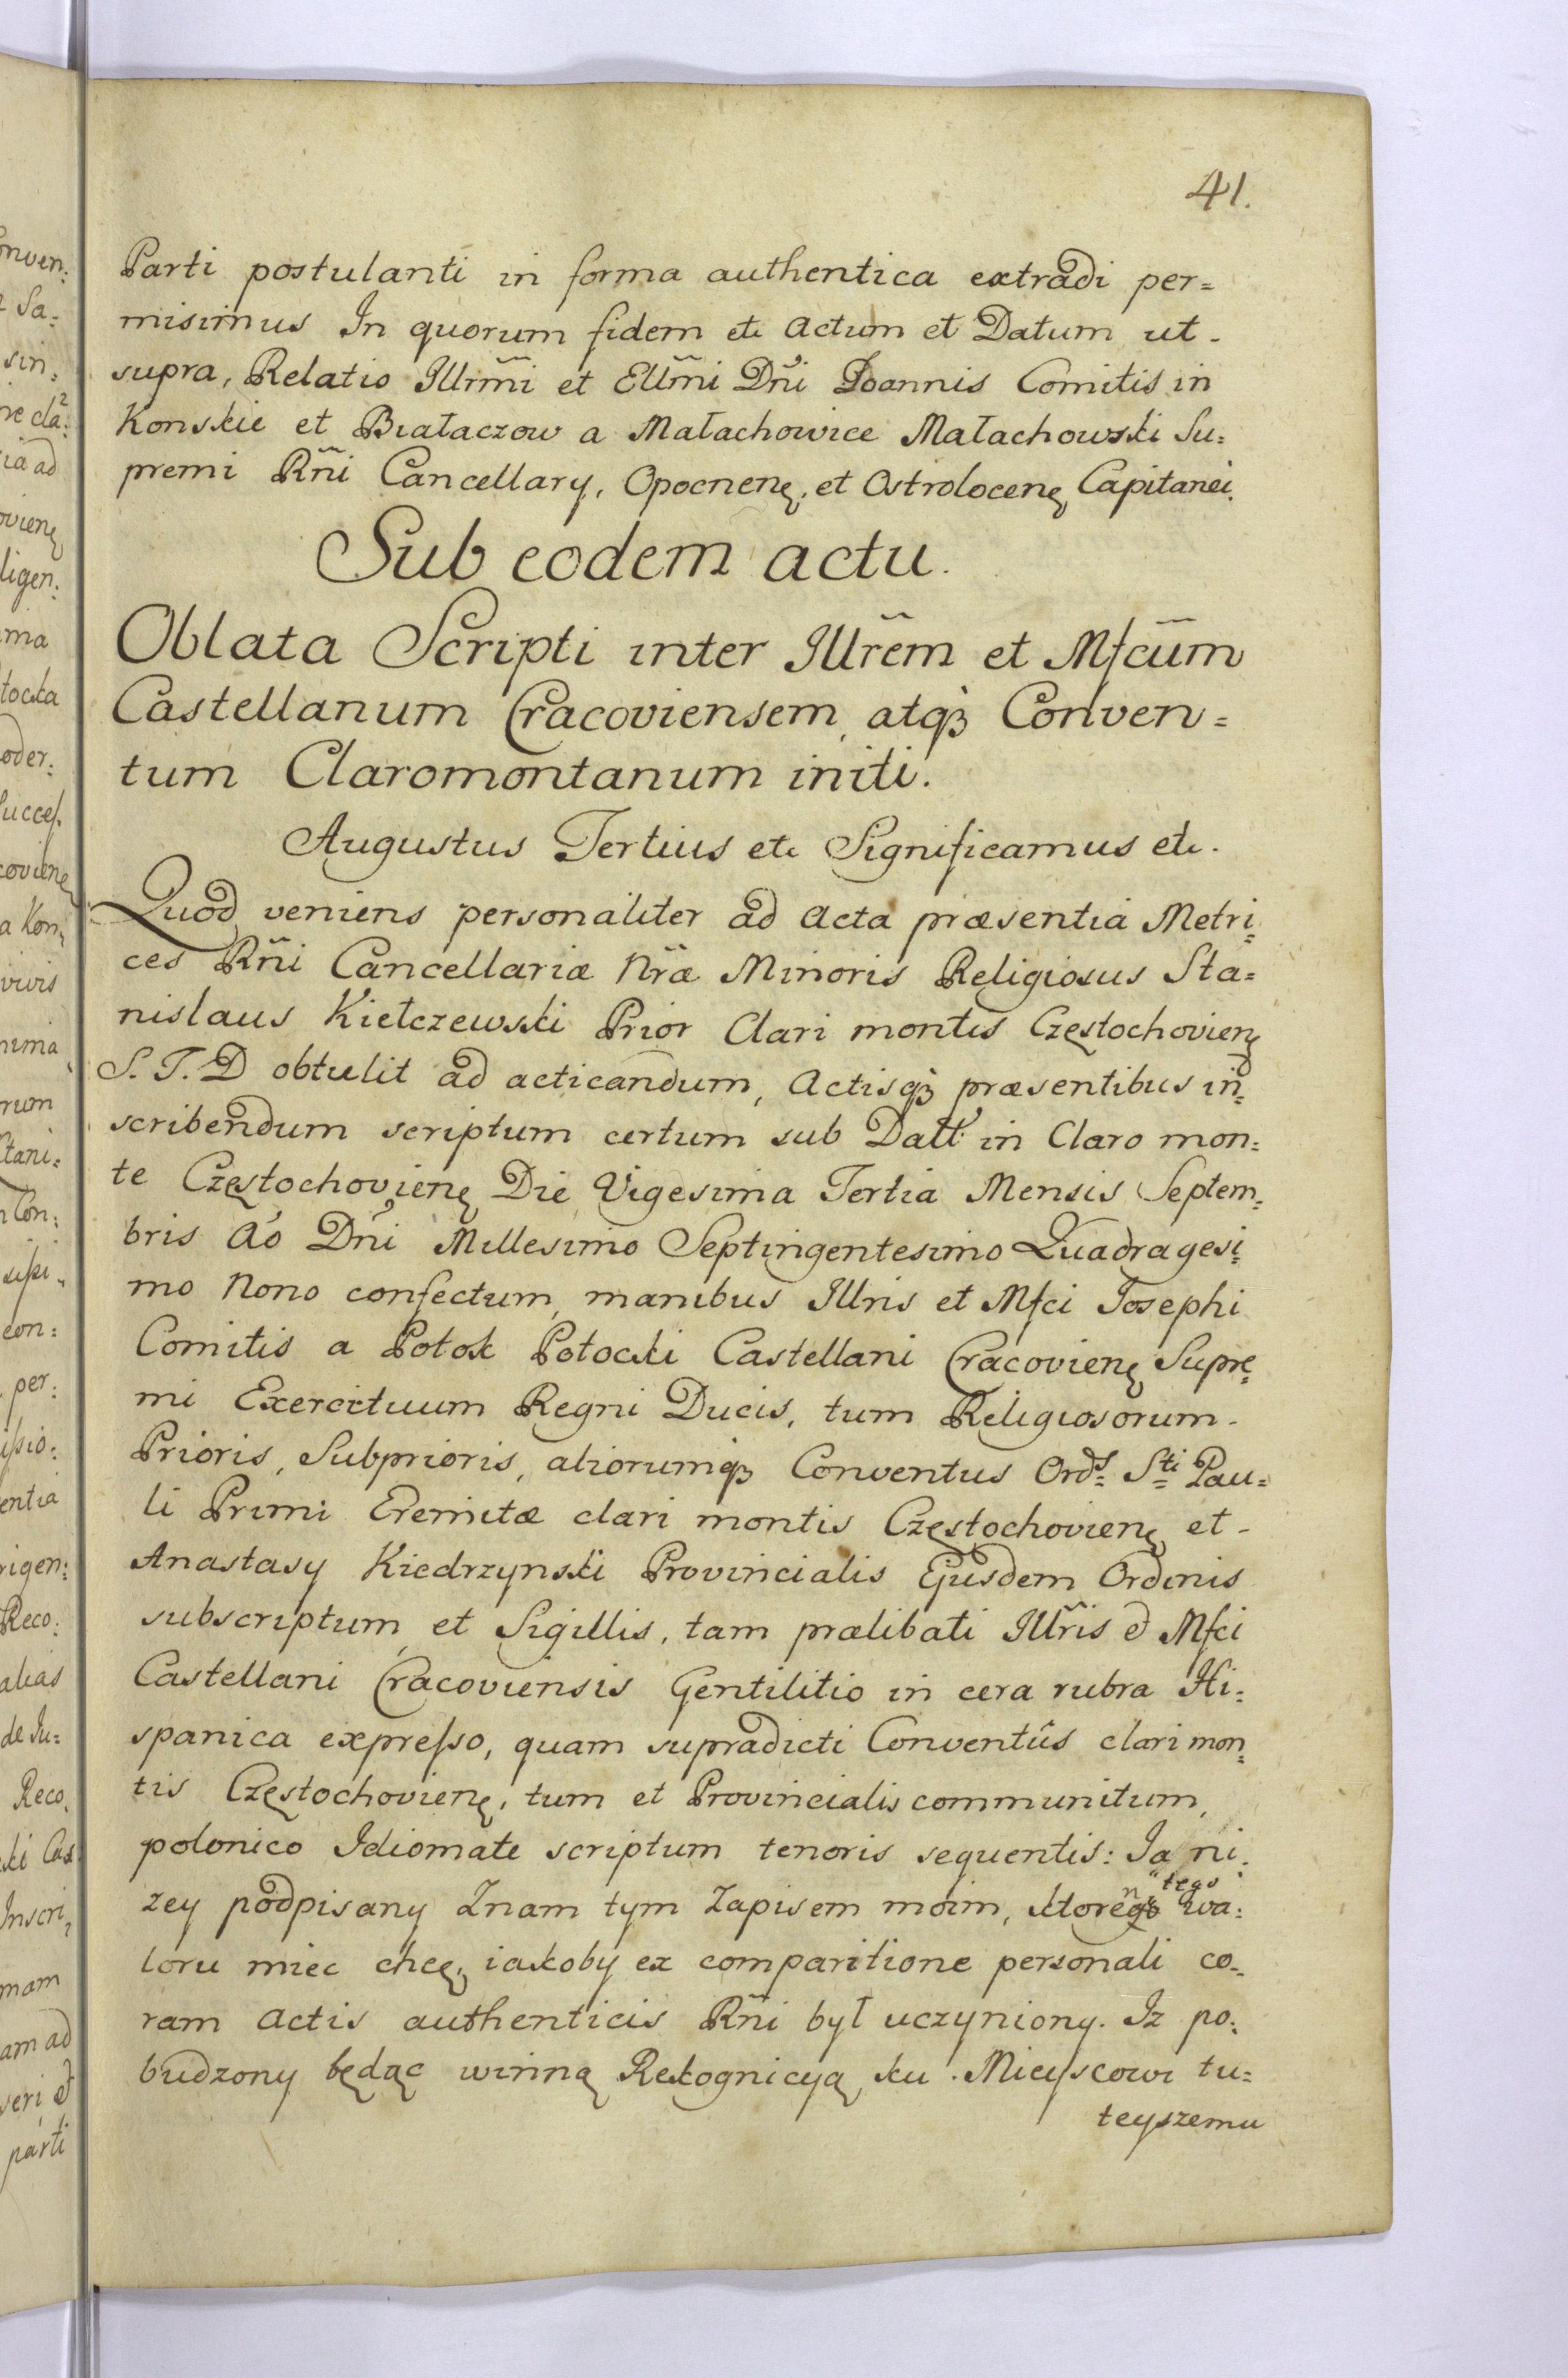 41.
Parti postulanti in forma authentica extradi per=
misimus In quorum fidem etc Actum et Datum ut-
supra, Relatio Illrm̃i et Ellm̃i Dñi Joannis Comitis in
Konskie et Białaczow a Małachowice Małachowski Su=
premi Rñi Cancellary, Opocnenę, et Ostrolocenę Capitanei.
Sub eodem actu.
Oblata Scripti inter Illrẽm et Mfcũm
Castellanum Cracoviensem, atqȝ Conven=
tum Claromontanum initi.
Augustus Tertius etc Significamus etc.
Quod veniens personaliter ad Acta præsentia Metri=
ces Rñi Cancellariæ Nr̃æ Minoris Religiosus Sta=
nislaus Kiełczewski Prior Clari montis Częstochovienę
S. T. D obtulit ad acticandum, Actisqȝ præsentibus ind=
scribendum scriptum certum sub Datt: in Claro mon=
te Częstochovienę Die Vigesima Tertia Mensis Septem=
bris Aó Dñi Millesimo Septingentesimo Quadragesi=
mo Nono confectum, manibus Illris et Mfci Josephi
Comitis a Potok Potocki Castellani Cracovienę Supre=
mi Exercituum Regni Ducis, tum Religiosorum-
Prioris, Subprioris, aliorumqȝ Conventus Ordˢ= Sti= Pau=
li Primi Eremitæ clari montis Częstochovienę et-
Anastasy Kiedrzynski Provincialis Ejusdem Ordinis
subscriptum, et Sigillis, tam prælibati Illr̃is et Mfci
Castellani Cracoviensis Gentilitio in cera rubra Hi=
spanica expreſso, quam supradicti Conventûs clari mon=
tis Częstochovienę, tum et Provincialis communitum,
polonico Idiomate scriptum tenoris sequentis: Ja ni=
zey podpisany Znam tym Zapisem moim, ktorego n" tego wa=
loru miec chcę, iakoby ex comparitione personali co=
ram Actis authenticis Rñi był uczyniony. Iz po=
budzony będąc winną Rekognicyą ku Mieyscowi tu=
teyszemu